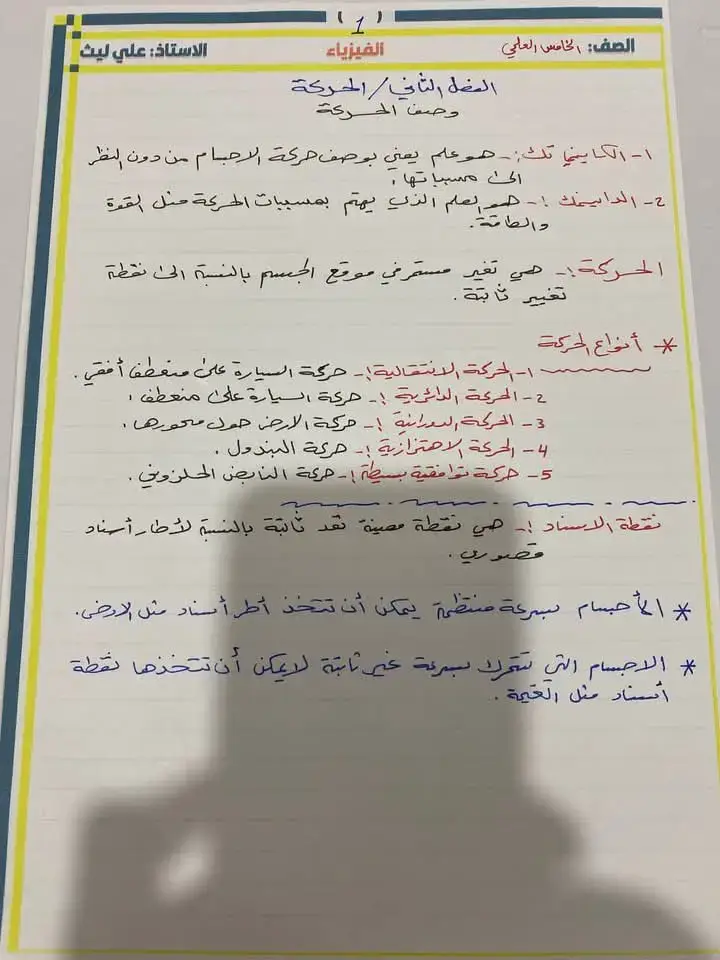 ( 1 )
الصف: الخامس العلمي
الفيزياء
الاستاذ: علي ليث
الفصل الثاني / الحركة
وصف الحركة
1- الكاينماتك :- هو علم يعني بوصف حركة الاجسام من دون النظر
الى مسبباتها.
2- الداينمك :- هو العلم الذي يهتم بمسببات الحركة مثل القوة
والطاقة.
الحركة :- هي تغير مستمر في موقع الجسم بالنسبة الى نقطة
تغيير ثابتة.
* أنواع الحركة
1- الحركة الانتقالية :- حركة السيارة على منعطف أفقي.
2- الحركة الدائرية :- حركة السيارة على منعطف.
3- الحركة الدورانية :- حركة الارض حول محورها.
4- الحركة الاهتزازية :- حركة البندول.
5- حركة توافقية بسيطة :- حركة النابض الحلزوني.
نقطة الاسناد :- هي نقطة معينة تعد ثابتة بالنسبة لأطار أسناد
قصوري.
* الأجسام بسرعة منتظمة يمكن أن تتخذ أطر أسناد مثل الارض.
* الاجسام التي تتحرك بسرعة غير ثابتة لايمكن أن تتخذها نقطة
أسناد مثل الغيمة.